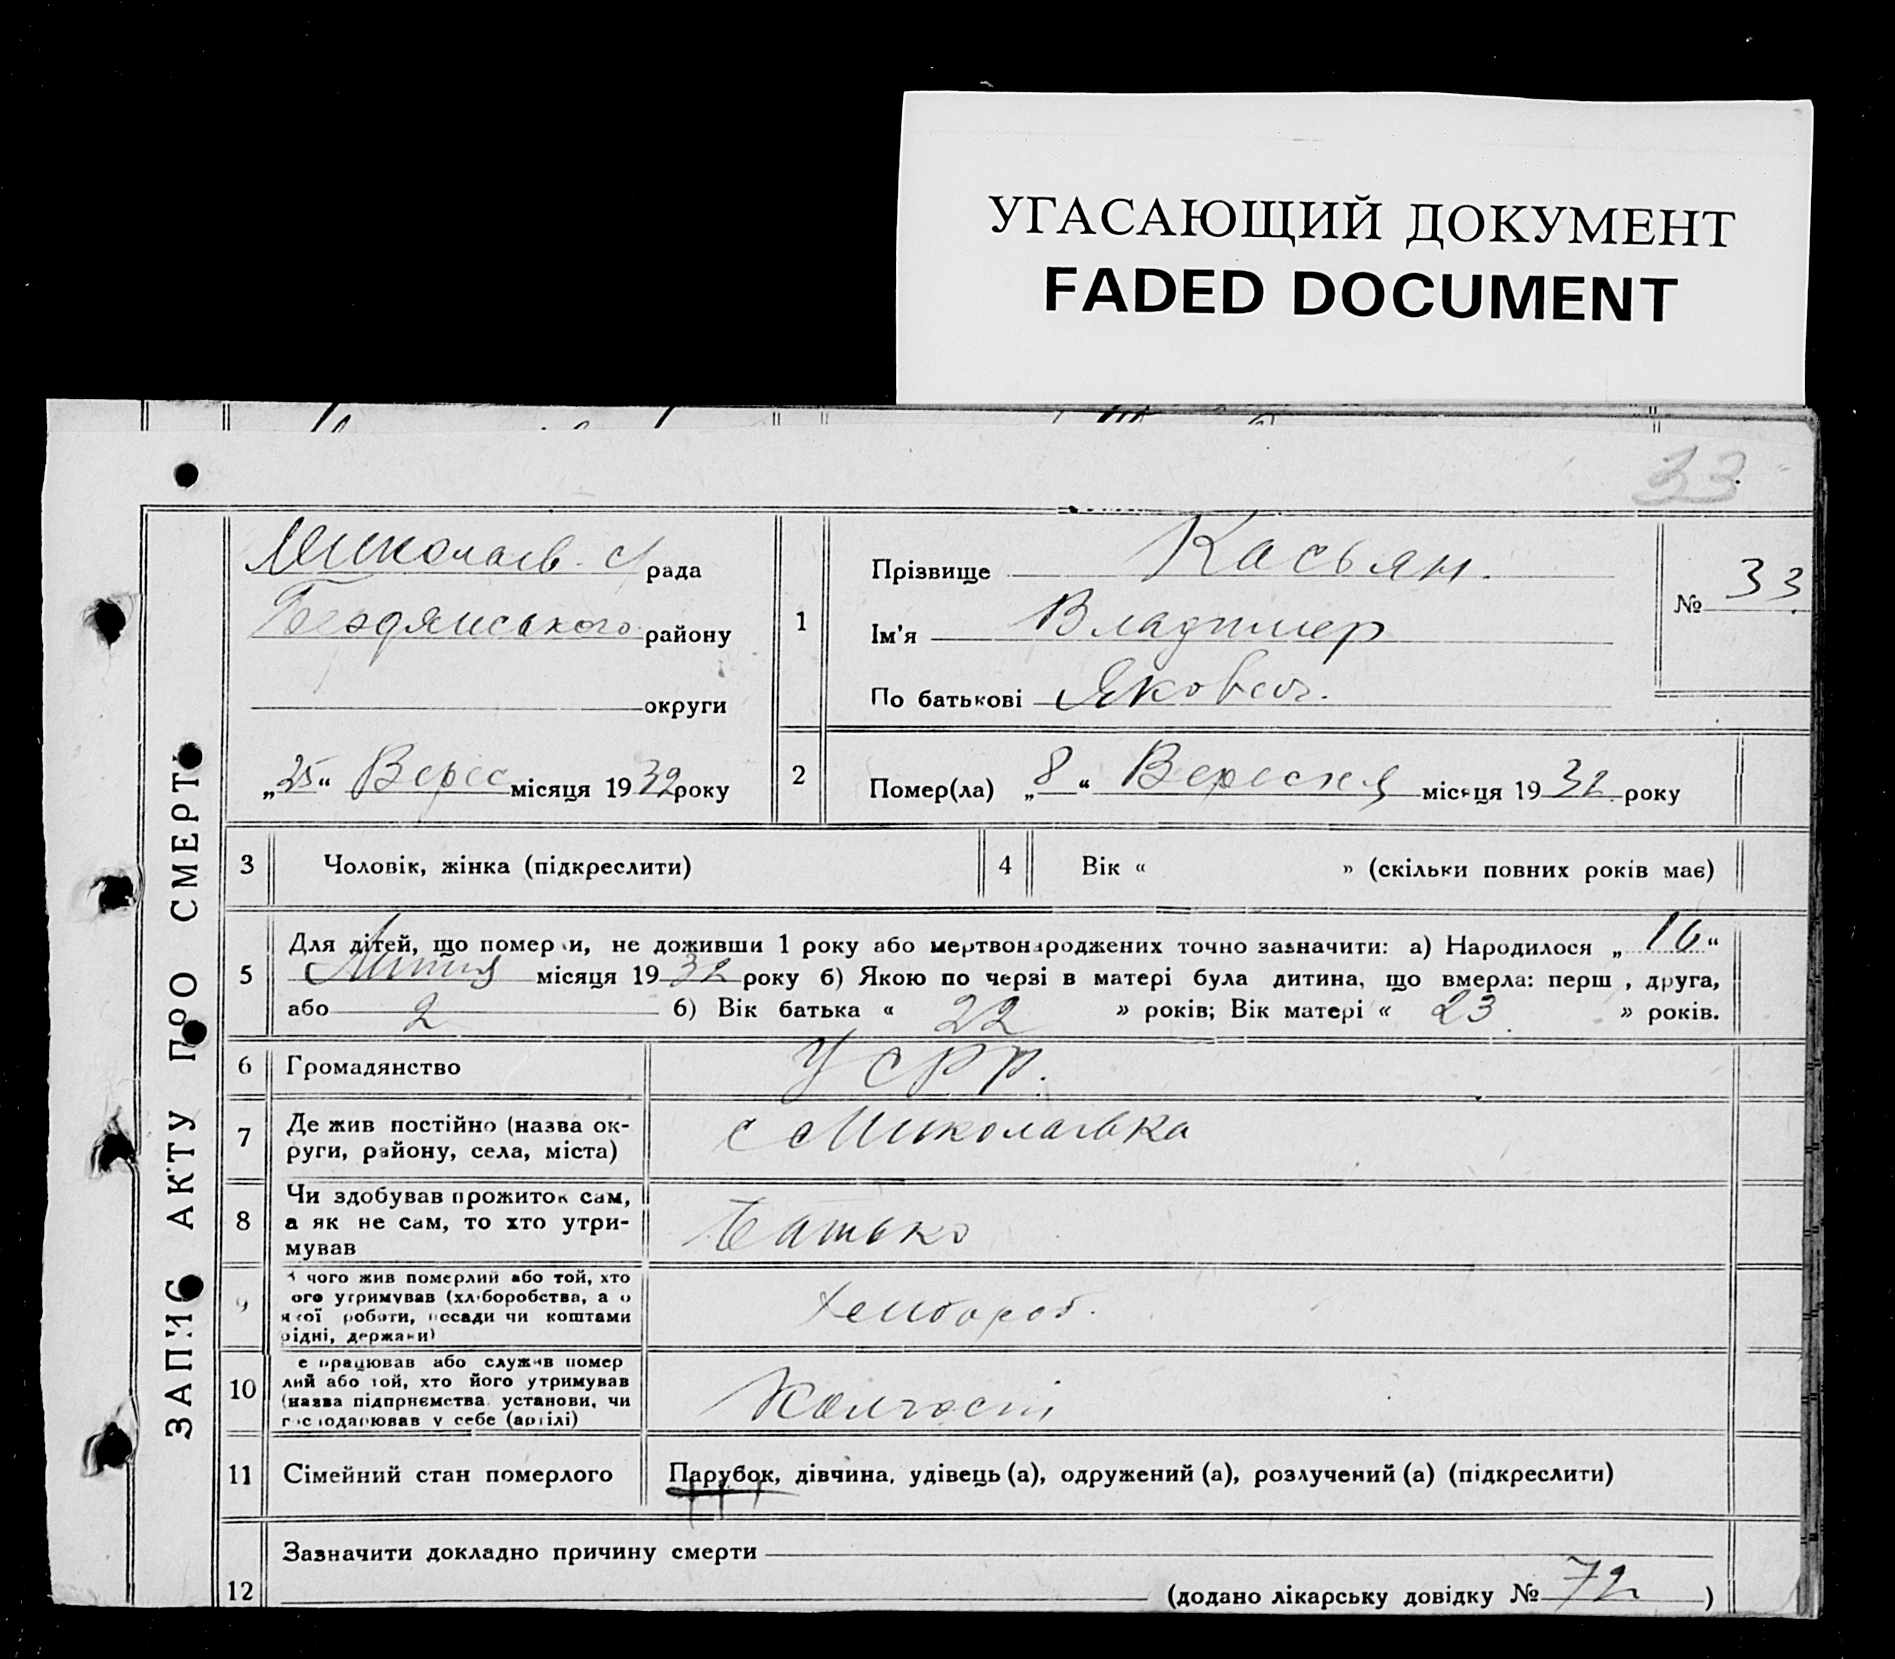 УГАСАЮЩИЙ ДОКУМЕНТ
FADED DOCUMENT
33
ЗАПИС АКТУ ПРО СМЕРТЬ
Миколаїв. с/рада
Бердянського району
округи
„25“ Верес місяця 1932 року
1
Прізвище Касьян.
Ім'я Владимер
По батькові Яковєв.
№ 33
2
Помер(ла) „8“ Вересня місяця 1932 року
3
Чоловік, жінка (підкреслити)
4
Вік « » (скільки повних років має)
5
Для дітей, що померли, не доживши 1 року або мертвонароджених точно зазначити: а) Народилося „16“
Липня місяця 1932 року б) Якою по черзі в матері була дитина, що вмерла: перш , друга,
або 2 б) Вік батька « 22 » років; Вік матері « 23 » років.
6
Громадянство
УСРР.
7
Де жив постійно (назва ок-
руги, району, села, міста)
с Миколаївка
8
Чи здобував прожиток сам,
а як не сам, то хто утри-
мував
Батько
9
чого жив померлий або той, хто
ого утримував (хліборобства, а о
якої роботи, посади чи коштами
рідні, держави)
Хлибороб.
10
е працював або служив помер
лий або той, хто його утримував
(назва підприємства, установи, чи
господарював у себе (артілі)
Колгоспі
11
Сімейний стан померлого
Парубок, дівчина, удівець (а), одружений (а), розлучений (а) (підкреслити)
12
Зазначити докладно причину смерти
(додано лікарську довідку № 72 )